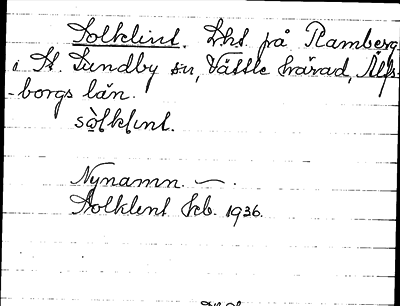 Solklint. Lht på Ramberg
i St. Lundby sn, Vättle härad, Älfs-
-borgs län.
sòlklınt.
Nynamn. —
Solklint kb. 1936.